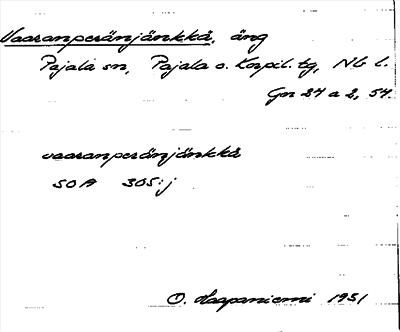 Vaaranperänjänkkä, äng
Pajala sn, Pajala o. Korpil. tg, Nb l.
Gn 27 a 2, 54.
vaaranperänjänkkä
SOA 305:j
O. Haapaniemi 1951